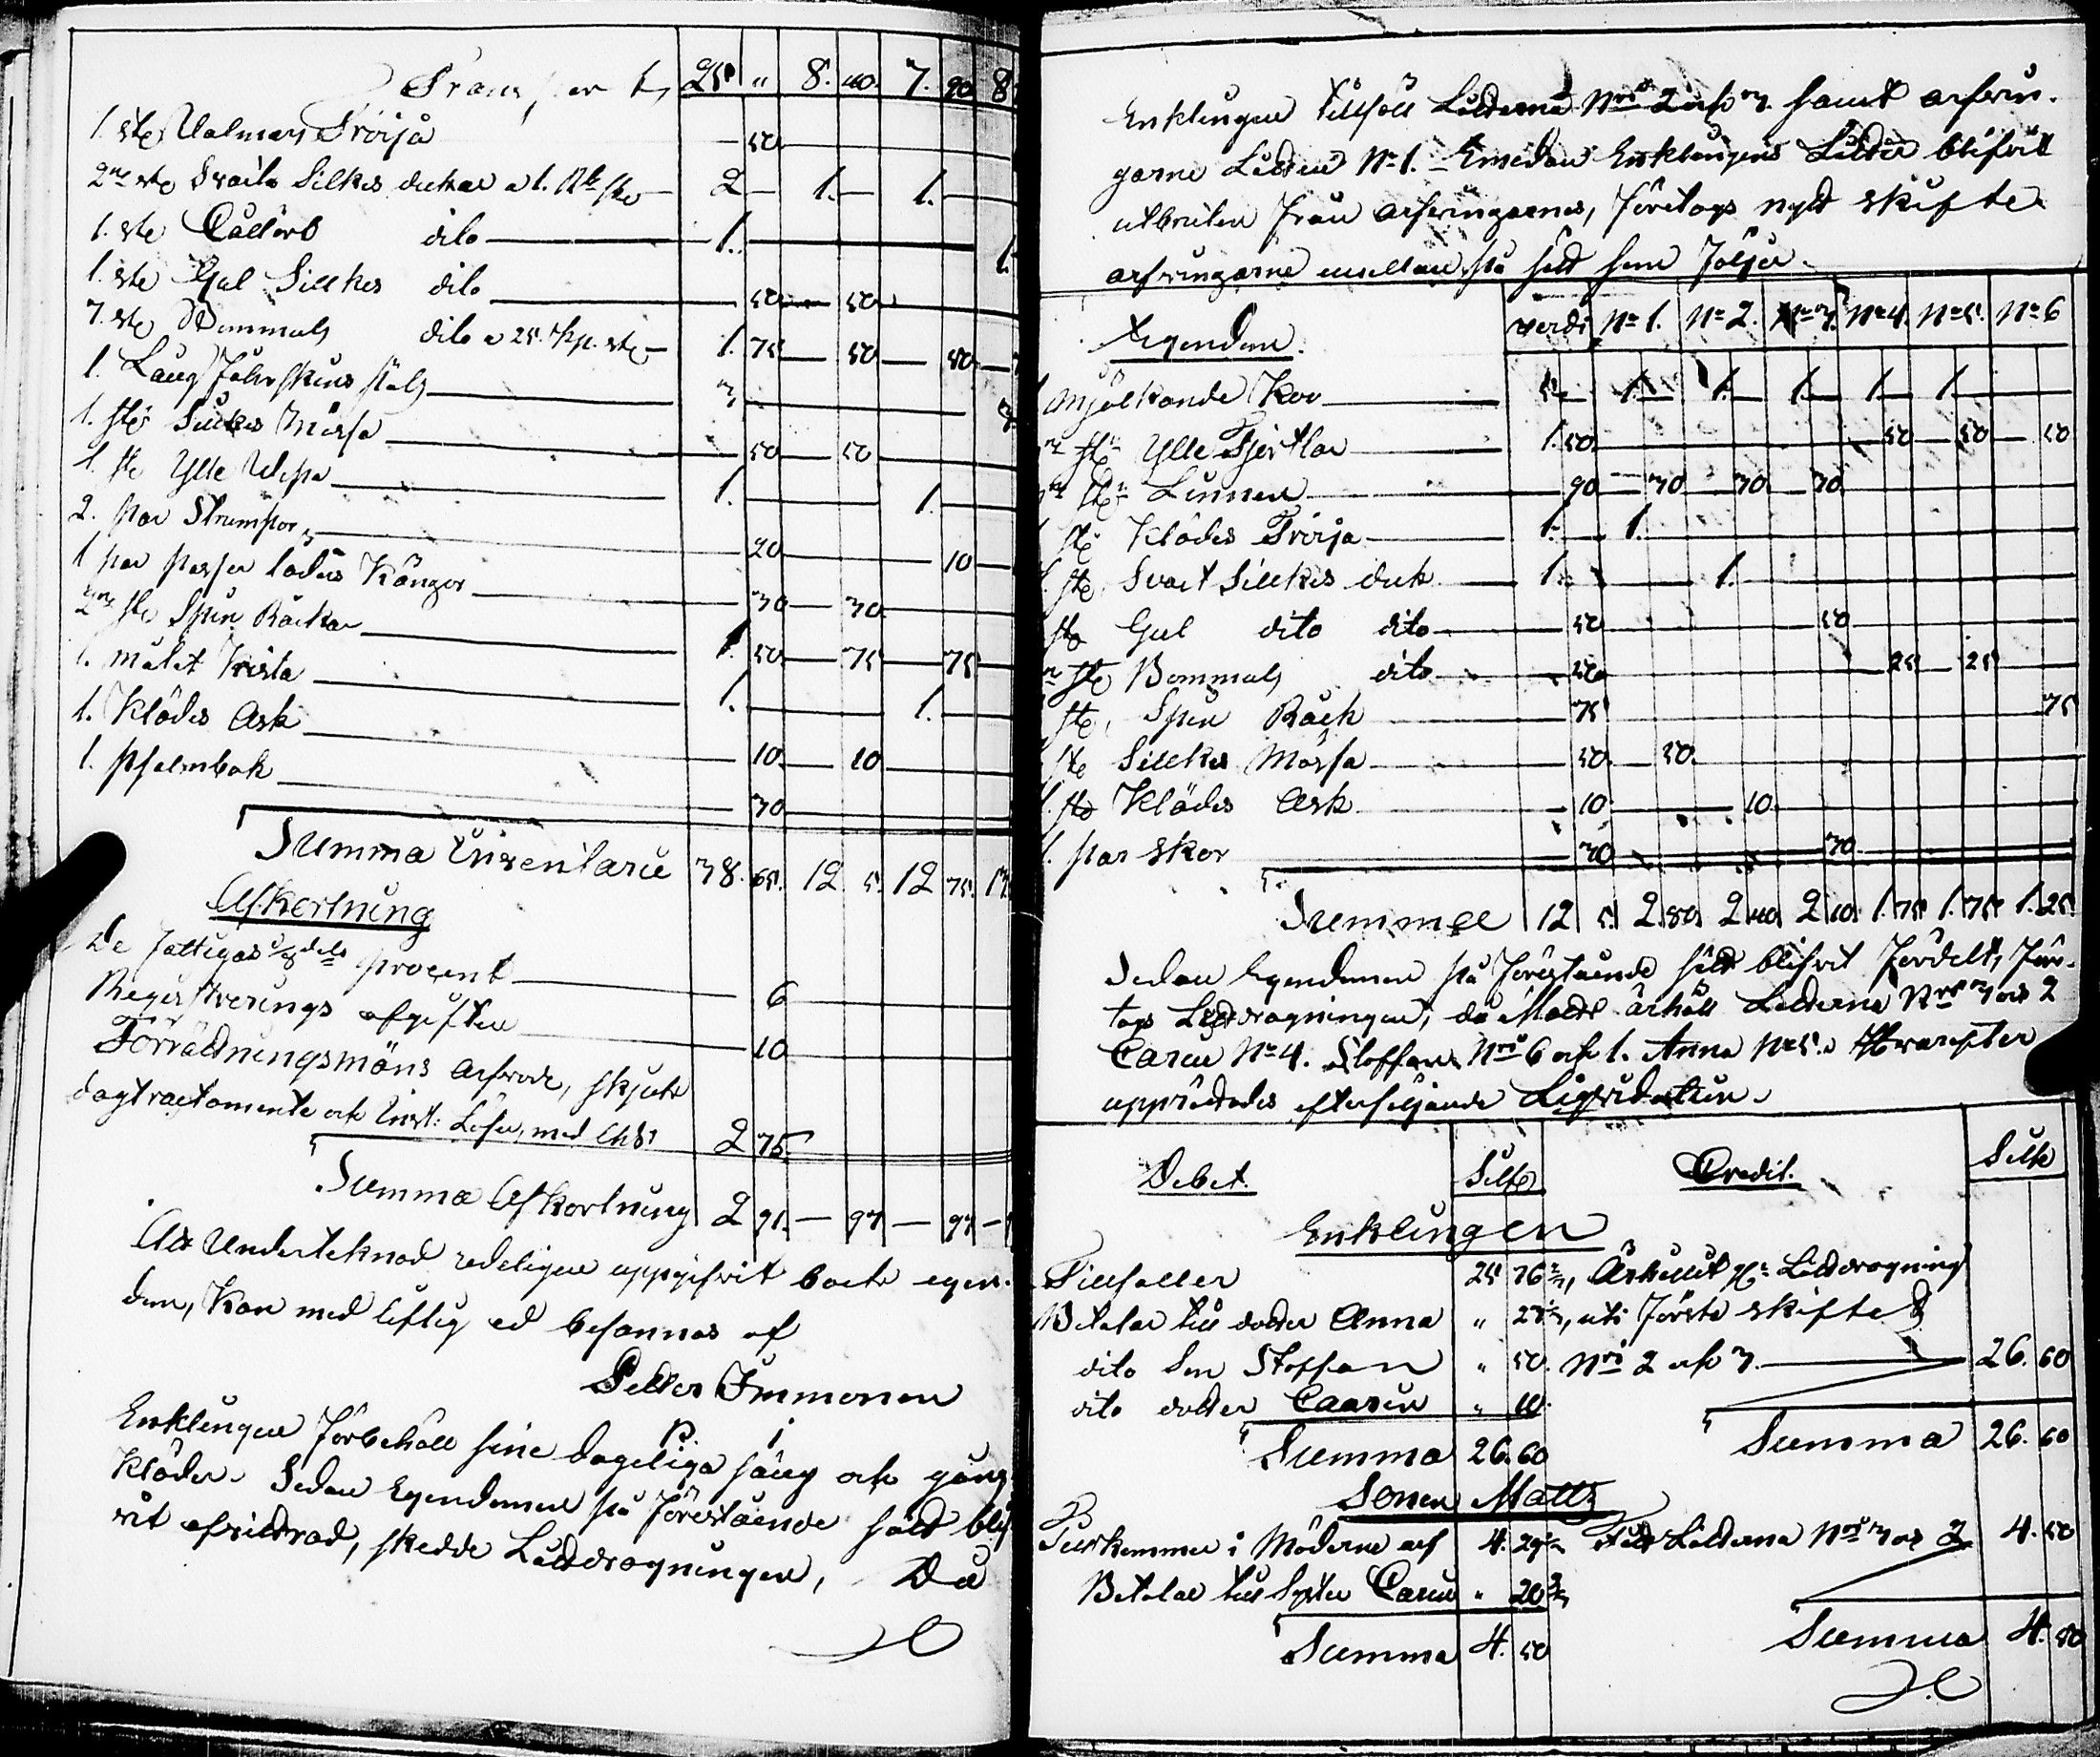 Transport, 25 " 8. 40. 7. 90 8
1. ste Tröija — 50
2ne ste Svarta Silkes dukar a 1. Rb ste — 2 — 1. — 1.
1. ste Cullört dito — 1. — 1.
1. ste Gul Silkes dito — 50 — 50
7. ste Bommuls dito a 25. kp. ste — 1. 75 — 50 — 50
1. Lång Fåhrskins päls — 3
1. ste Silkes Mössa — 50 — 50
1. ste Ylle — 1. — 1.
2. par Strumpor — 20 — 10
1 par läders Kängor — 30 — 30
2ne ste Spin Råckar — 1. 50 — 75 — 75
1. målat Kista — 1. — 1.
1. Klädes Ask — 10 — 10
1. psalmbok — 30
Summa Inventarie 38. 65. 12. 5. 12 75. 13
Afkortning
De fattigas 1/8 dels procent — 6
Registrerings afgiften — 10
Förrättningsmäns arfvode, skjuts
dagtractamente och Lösen, med 2 75.
Summa Afkortning 2 91. — 97 — 97 —
Att Undertecknad redeligen uppgifvit boets egen-
dom, kan med liflig ed besannas af
Petter Immonen
Enklingen förbehöll sine dageliga säng och gång
kläder. Sedan Egendomen på förestående sätt blif
vit afvittrad, skedde Lottdragningen, Då
Enklingen tillföll Lotterna Nris 2 och 3. samt arfvin-
garne Lotten No 1. – Emedan Enklingens Lotter blifvit
utbruten från arfvingarnes, företogs nytt skifte
arfvingarne emellan på sätt som följer.
Egendom. verdi No 1. No 2. No 3. No 4. No 5. No 6
Mjölkande Kor — 5 — 1. — 1. — 1. — 1. — 1.
ste Ylle Kjortlar — 1. 50 — 50 — 50 — 50
ste Linnen — 90 — 30 — 30 — 30
ste Klädes Tröija — 1. — 1.
ste Svart Silkes duk — 1. — 1.
ste Gul dito dito — 50 — 50
ste Bommuls dito — 50 — 25 — 25
ste Spin Råck — 75 — 75
ste Silkes Mössa — 50 — 50
1. ste Klädes Ask — 10 — 10
1. par skor — 30 — 30
Summa 12 5. 2. 80 2 40 2 10 1. 75 1. 75 1. 25
Sedan Egendomen på förestående sätt blifvit fördelt, före-
togs Lottdragningen, då Matts erhöll Lotterna Nris 3 och 2
Carin No 4. Stoffan Nris 6 och 1. Anna No 5. Hvarefter
upprättades efterföljande Liqvidation.
Debet. Silfr Credit. Silfr
Enklingen
Tillfaller 25 76, Erhållit pr Lottdragning
Betalar till dotter Anna " 23, uti första skiftet
dito Son Stoffan " 50. Nris 2 och 3. — 26. 60
dito dotter Caarin " 10.
Summa 26. 60 Summa 26. 60
Sonen Matts
Tillkommer i Möderne arf 4. 29 Fått Lotterna Nris 3 och 2 4. 50
Betalar till Syster Carin " 20
Summa 4. 50 Summa 4. 50